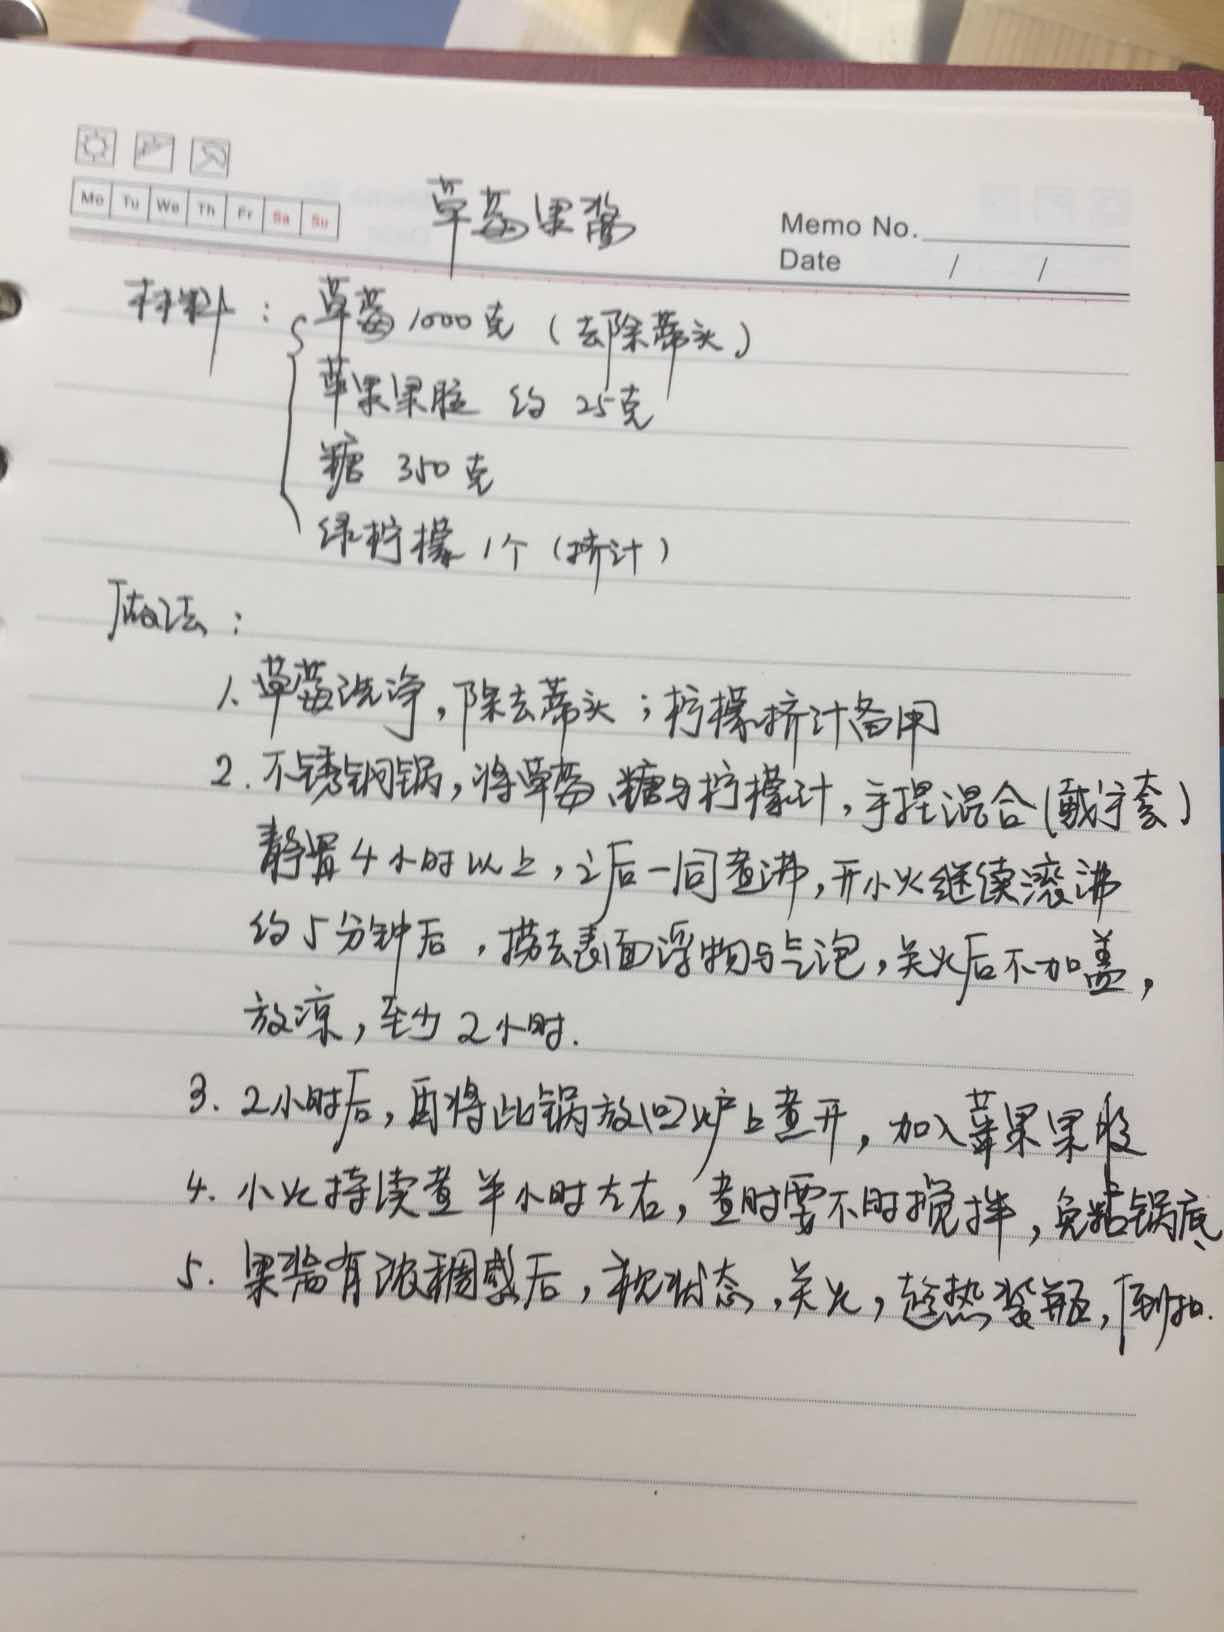 Mo Tu We Th Fr Sa Su
草莓果酱
Memo No.
Date / /
材料：草莓1000克（去除蒂头）
苹果果胶 约 25克
糖 350克
绿柠檬 1个（挤汁）
做法：
1. 草莓洗净，除去蒂头；柠檬挤汁备用
2. 不锈钢锅，将草莓、糖与柠檬汁，手捏混合（戴手套）
静置4小时以上，之后一同煮沸，开小火继续滚沸
约5分钟后，捞去表面浮物与气泡，关火后不加盖，
放凉，至少2小时.
3. 2小时后，再将此锅放回炉上煮开，加入苹果果胶
4. 小火持续煮半小时左右，煮时要不时搅拌，免粘锅底、
5. 果酱有浓稠感后，软状态，关火，趁热装瓶，倒扣.